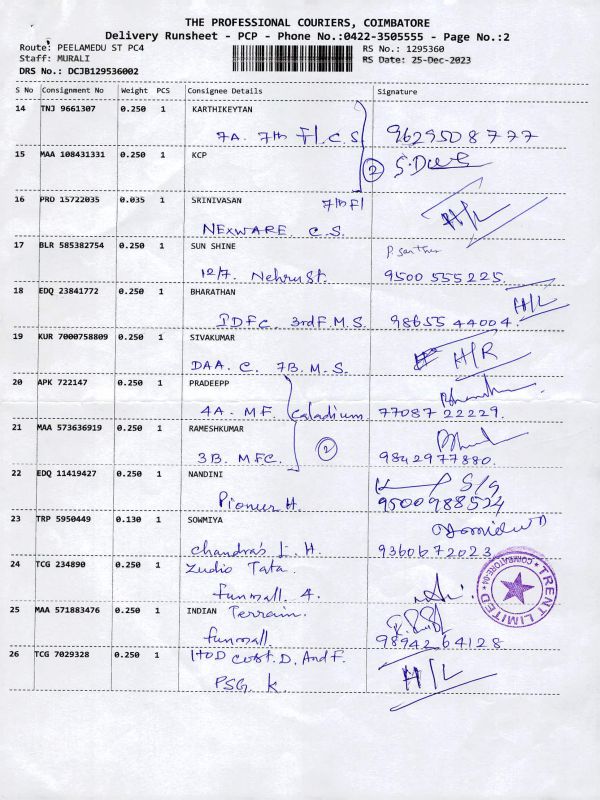 THE PROFESSIONAL COURIERS, COIMBATORE
Delivery Runsheet - PCP - Phone No.:0422-3505555 - Page No.:2
Route: PEELAMEDU ST PC4 RS No.: 1295360
Staff: MURALI RS Date: 25-Dec-2023
DRS No.: DCJB129536002
S No Consignment No Weight PCS Consignee Details Signature
14 TNJ 9661307 0.250 1 KARTHIKEYTAN
7A. 7th Fl. C.S 9629508777
15 MAA 108431331 0.250 1 KCP 2
16 PRO 15722035 0.035 1 SRINIVASAN 7th Fl
NEXWARE C.S. H/L
17 BLR 585382754 0.250 1 SUN SHINE
12/7. Nehru St. 9500 555225.
18 EDQ 23841772 0.250 1 BHARATHAN H/L
IDFC. 3rd F. M.S. 98655 44004.
19 KUR 7000758809 0.250 1 SIVAKUMAR H/R
DAA. C. 7B. M.S.
20 APK 722147 0.250 1 PRADEEPP
4A. MF. Caladium 77087 22229.
21 MAA 573636919 0.250 1 RAMESHKUMAR 2
3B. MFC. 9842977880.
22 EDQ 11419427 0.250 1 NANDINI S/g
Pioneer H. 9500988524
23 TRP 5950449 0.130 1 SOWMIYA
Chandra's L. H. 9360672023
24 TCG 234890 0.250 1 Zudio Tata.
funmall. 4.
TRENT LIMITED
COIMBATORE-04
25 MAA 571883476 0.250 1 INDIAN Terrain.
funmall. 98942 64128
26 TCG 7029328 0.250 1 HOD Cost. D. And F. H/L
PSG. K.